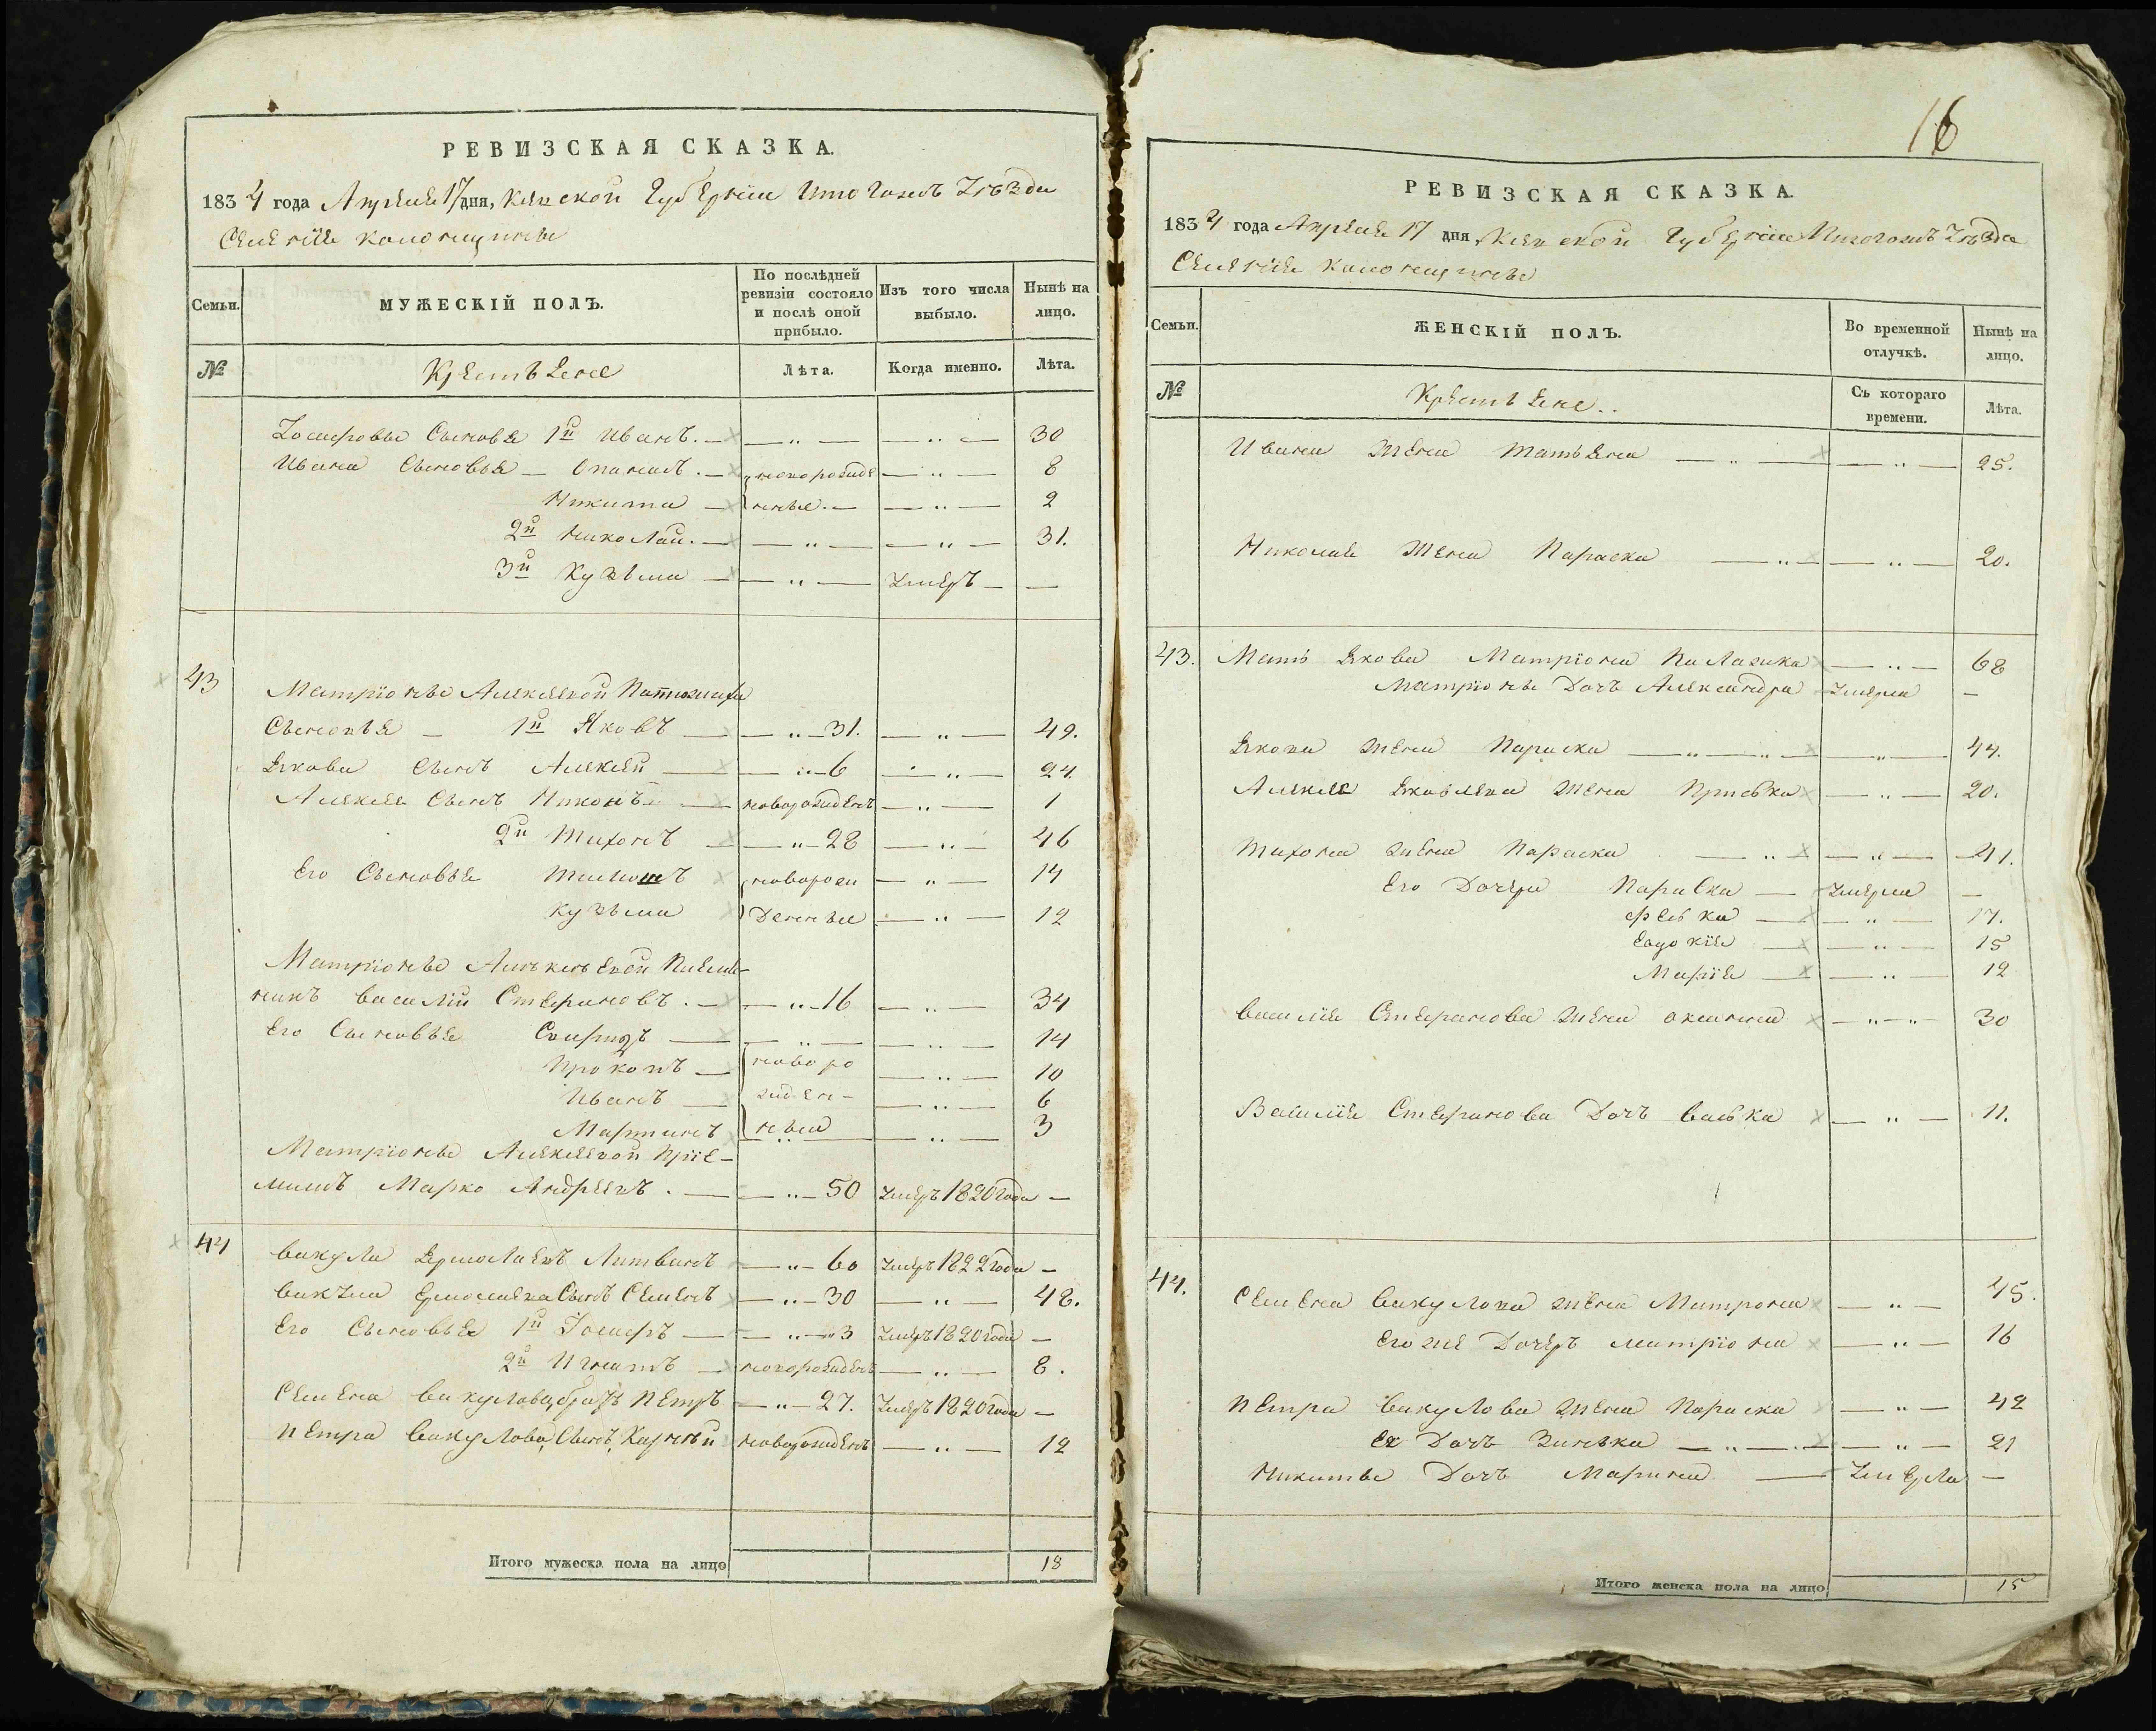 РЕВИЗСКАЯ СКАЗКА.
1834 года Апреля 17 дня, Киевской Губернии Уезда
Селения
Семьи. МУЖЕСКІЙ ПОЛЪ. По послѣдней ревизіи состояло и послѣ оной прибыло. Изъ того числа выбыло. Нынѣ на лицо.
№ Крестьяне Лѣта. Когда именно. Лѣта.
Іосифовы Сыновья 1й Иванъ. — — „ — — „ — 30
Ивана Сыновья — Опанасъ. — новорожде — „ — 8
Никита — нные. — — „ — 2
2й Николай. — — „ — — „ — 31.
3й Кузьма — — „ — Умеръ — —
43
Матріоны Алекѣевой
Сыновья — 1й Яковъ — — „ — 31. — „ — 49.
Якова Сынъ Алекѣй — — „ — 6 — „ — 24
Алекѣя Сынъ Никонъ — новорожденъ — „ — 1
2й Тихонъ — — „ — 28 — „ — 46
Его Сыновья новорож — „ — 14
Кузьма денные — „ — 12
Матріоны Алекѣевой Племя-
никъ Василій Стефановъ. — — „ — 16 — „ — 34
Его Сыновья Спиридъ — — „ — — „ — 14
Прокопъ — новоро — „ — 10
Иванъ — жден- — „ — 6
Мартинъ ные — „ — 3
Матріоны Алекѣевой Пріе-
мишъ Марко Андреевъ. — — „ — 50 Умеръ 1820 года —
44
Вакула Ермолаевъ Литвинъ — „ — 60 Умеръ 1822 года —
Вакула Ермолаева Сынъ Семенъ — „ — 30 — „ — 48.
Его Сыновья 1й Іосифъ — — „ — 3 Умеръ 1820 года —
2й Игнатъ — новорожденъ — „ — 8.
Семена Вакулова братъ Петръ — „ — 27. Умеръ 1820 года —
Петра Вакулова Сынъ Карній новорожденъ — „ — 12
Итого мужеска пола на лицо 18
16
РЕВИЗСКАЯ СКАЗКА.
1834 года Апреля 17 дня, Киевской Губернии Уезда
Селения
Семьи. ЖЕНСКІЙ ПОЛЪ. Во временной отлучкѣ. Нынѣ на лицо.
№ Крестьяне.. Съ котораго времени. Лѣта.
Ивана Жена Татьяна — „ — — „ — 25.
Николая Жена Параска — „ — — „ — 20.
43. Мать Якова Матріона Палажка — „ — 68
Матріоны Дочъ Александра Умерла —
Якова жена Параска — „ — „ — — „ — 44.
Алекѣя Яковлева Жена Приська — „ — 20.
Тихона жена Параска — „ — — „ — 41.
Его Дочери Параска — Умерла —
Феська — — „ — 17.
Евдокія — — „ — 15
Марія — — „ — 12
Василія Стефанова Жена Оксанна — „ — „ — 30
Василія Стефанова Дочъ Васька — „ — 11.
44. Семена Вакулова жена Матрона — „ — 45.
Его же Дочерь Матріона — „ — 16
Петра Вакулова Жена Параска — „ — 42
Ея Дочъ Зинька — „ — . — — „ — 21
Никиты Дочъ Марина — Умерла —
Итого женска пола на лицо 15